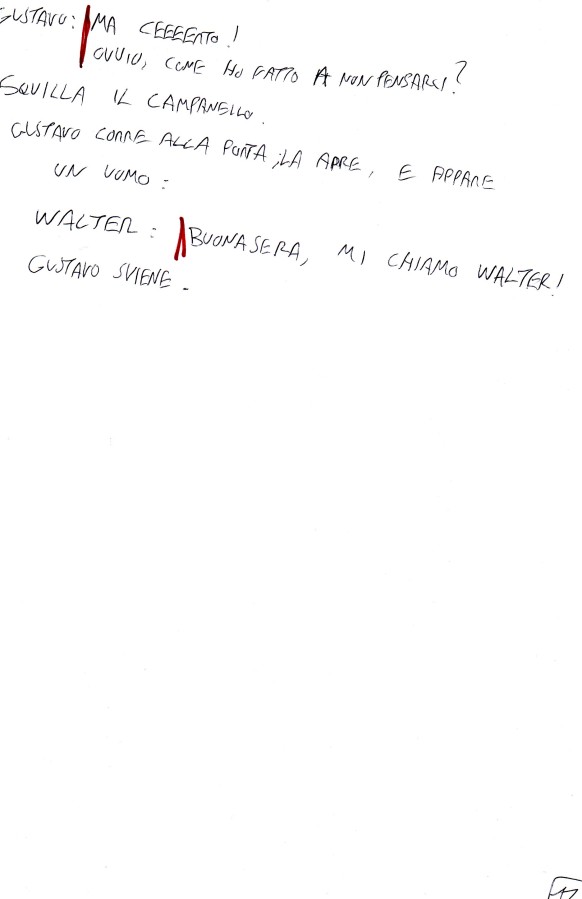 GUSTAVO: MA CEEEERTO!
OVVIO, COME HO FATTO A NON PENSARCI?
SQUILLA IL CAMPANELLO.
GUSTAVO CORRE ALLA PORTA, LA APRE, E APPARE
UN UOMO:
WALTER: BUONASERA, MI CHIAMO WALTER!
GUSTAVO SVIENE.